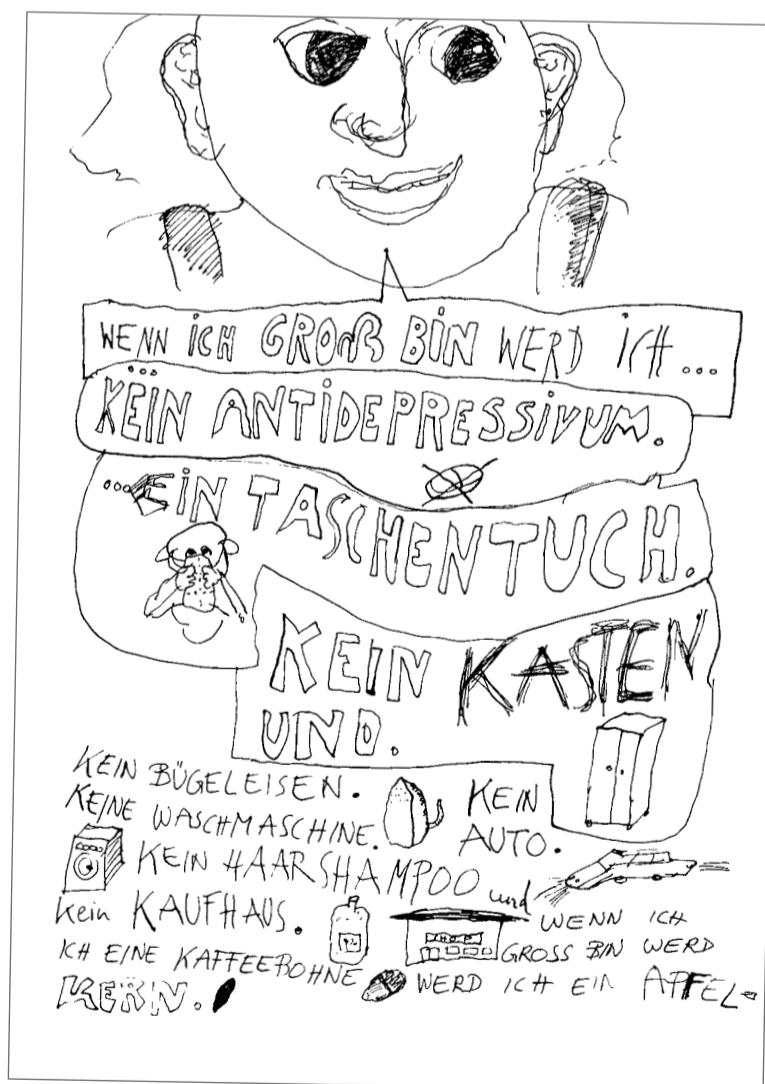 WENN iCH GROß BiN WERD iCH ...
... KEiN ANTiDEPRESSiVUM.
...EiN TASCHENTUCH.
KEIN KASTEN
UND.
KEIN BÜGELEISEN.
KEINE WASCHMASCHINE.
KEIN
AUTO.
KEIN HAARSHAMPOO und
kein KAUFHAUS.
WENN ICH
GROSS BIN WERD
ICH EINE KAFFEEBOHNE
WERD ICH EIN APFEL-
KERN.